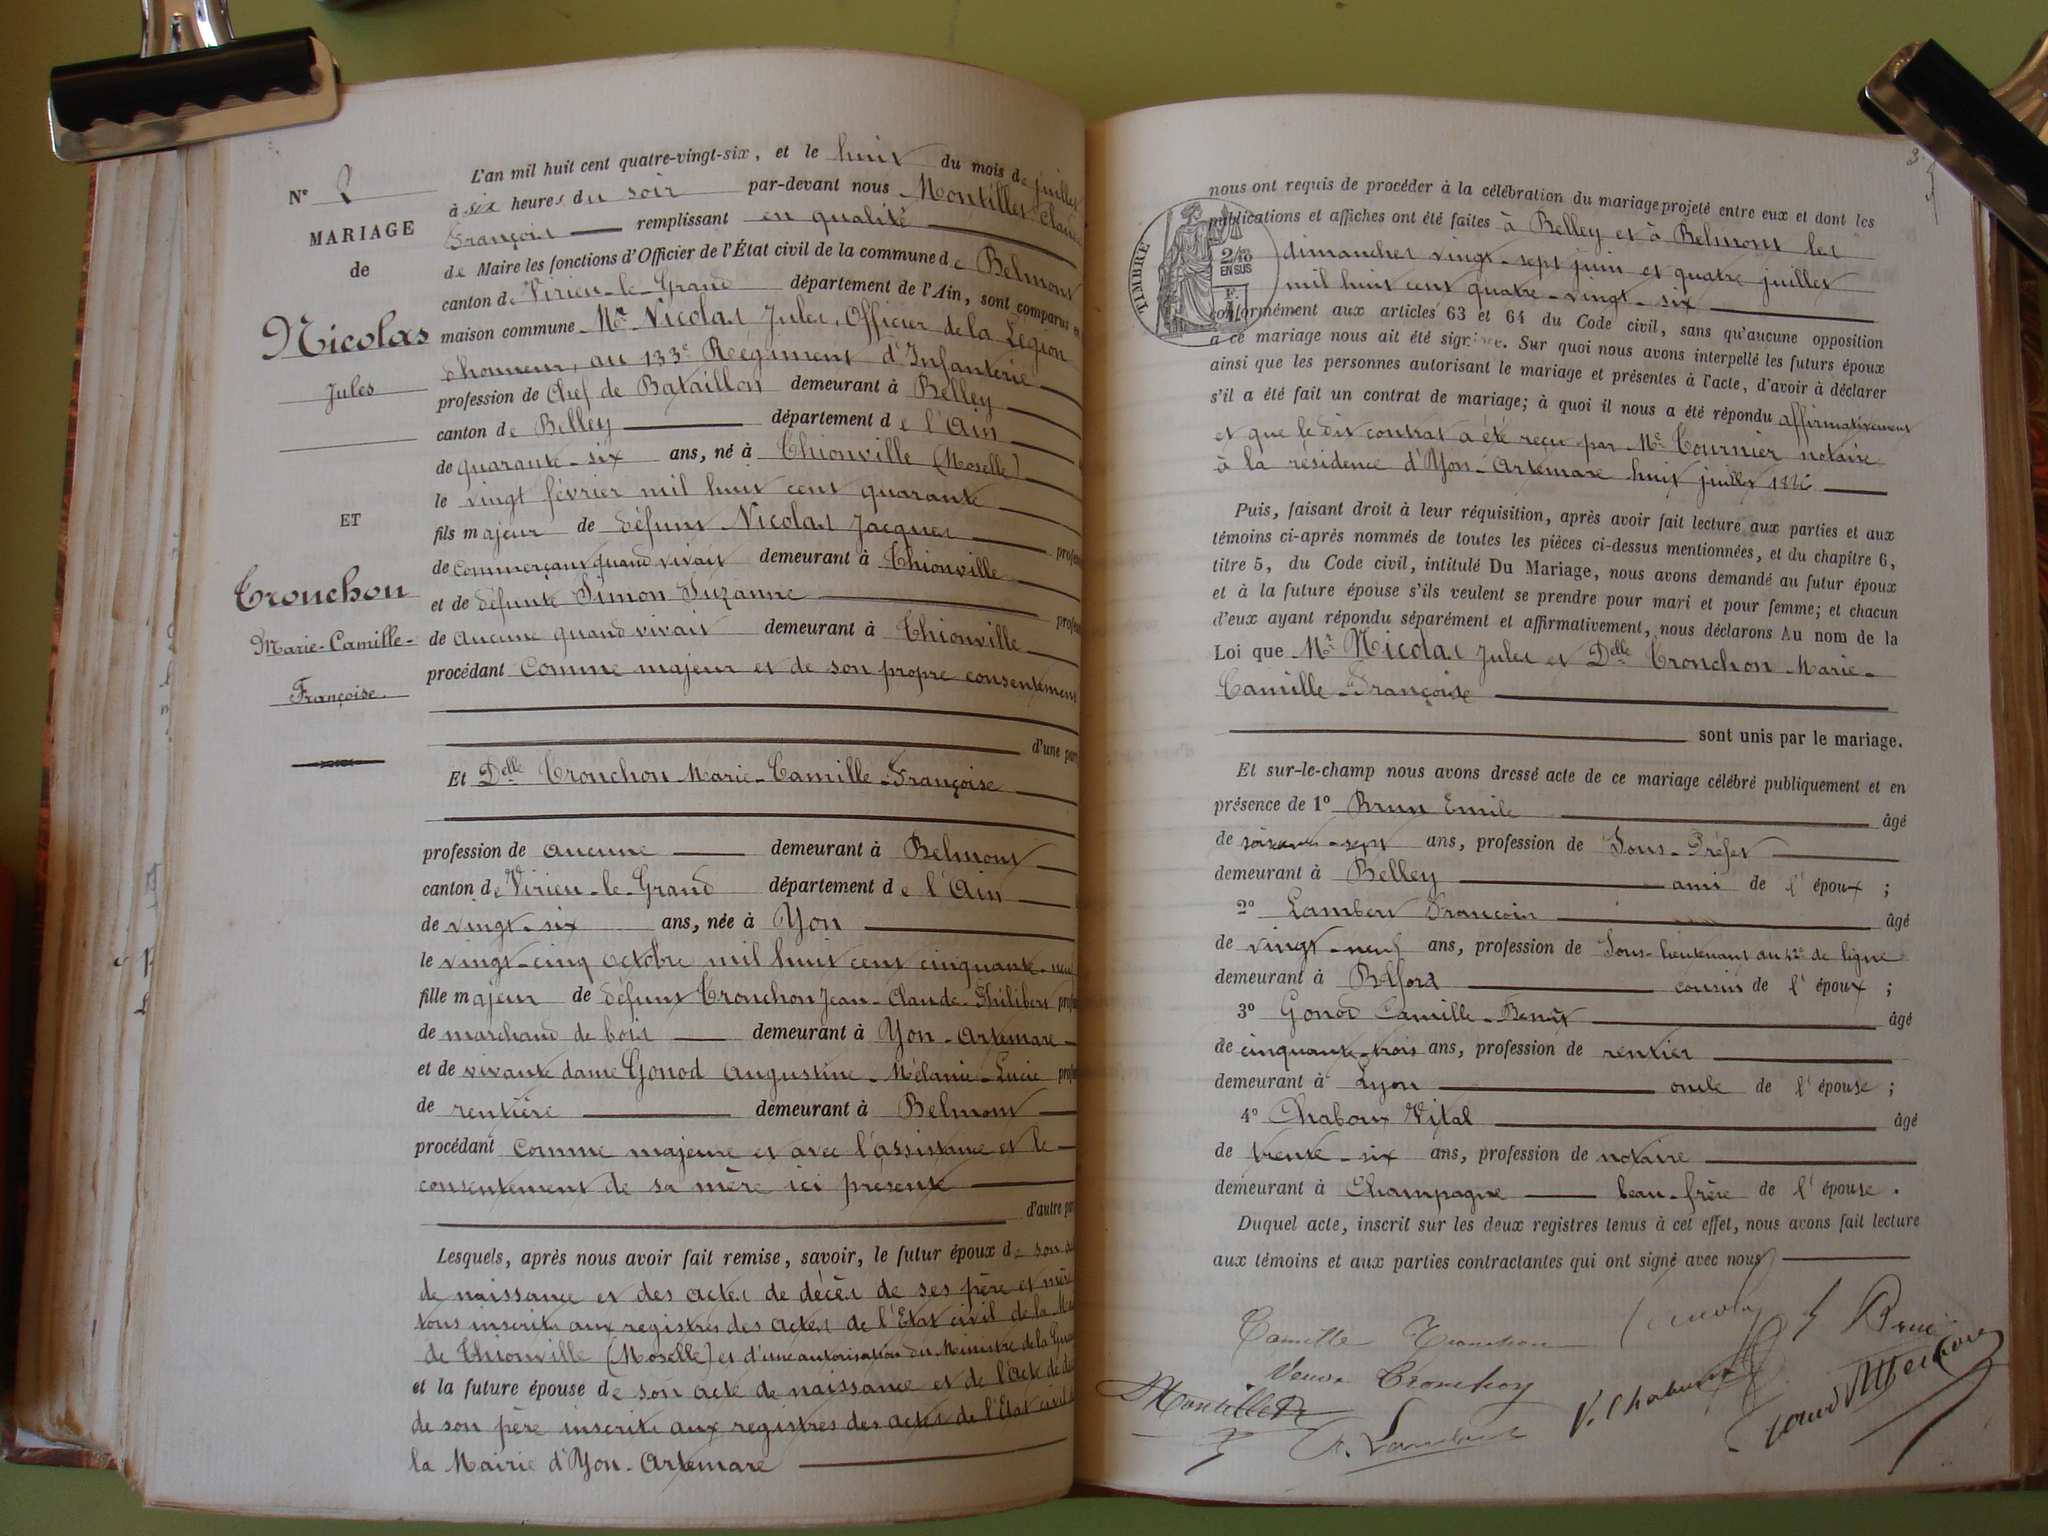 N° 2
MARIAGE
de
Nicolas
Jules
ET
Tronchon
Marie-Camille-
Françoise.
L'an mil huit cent quatre-vingt-six, et le huit du mois de juillet
à six heures du soir par-devant nous Montillet Claude
François remplissant en qualité
de Maire les fonctions d'Officier de l'État civil de la commune de Belmont
canton de Virieu-le-Grand département de l'Ain, sont comparus en
maison commune Mr Nicolas Jules, Officier de la Légion
d'honneur, au 133e Régiment d'Infanterie
profession de Chef de Bataillon demeurant à Belley
canton de Belley département de l'Ain
de quarante-six ans, né à Thionville (Moselle)
le vingt février mil huit cent quarante
fils majeur de défunt Nicolas Jacques profes
de commerçant quand vivait demeurant à Thionville
et de défunte Simon Suzanne profes
de aucune quand vivait demeurant à Thionville
procédant comme majeur et de son propre consentement
d'une part
Et Delle Tronchon Marie-Camille-Françoise
profession de aucune demeurant à Belmont
canton de Virieu-le-Grand département de l'Ain
de vingt-six ans, née à Yon
le vingt-cinq octobre mil huit cent cinquante-neuf
fille majeur de défunt Tronchon Jean-Claude-Philibert profes
de marchand de bois demeurant à Yon-Artemare
et de vivante dame Gonod Augustine-Mélanie-Lucie profes
de rentière demeurant à Belmont
procédant comme majeure et avec l'assistance et le
consentement de sa mère ici présente
d'autre par
Lesquels, après nous avoir fait remise, savoir, le futur époux de son a
de naissance et des actes de décès de ses père et mère
tous inscrits aux registres des actes de l'Etat civil de la Ma
de Thionville (Moselle) et d'une autorisation du Ministre de la Guer
et la future épouse de son acte de naissance et de l'acte de dé
de son père inscrits aux registres des actes de l'Etat civil d
la Mairie d'Yon-Artemare
3
nous ont requis de procéder à la célébration du mariage projeté entre eux et dont les
publications et affiches ont été faites à Belley et à Belmont les
dimanches vingt-sept juin et quatre juillet
mil huit cent quatre-vingt-six
TIMBRE
2/10
EN SUS
conformément aux articles 63 et 64 du Code civil, sans qu'aucune opposition
à ce mariage nous ait été signifiée. Sur quoi nous avons interpellé les futurs époux
ainsi que les personnes autorisant le mariage et présentes à l'acte, d'avoir à déclarer
s'il a été fait un contrat de mariage; à quoi il nous a été répondu affirmativement
et que le dit contrat a été reçu par Me Tournier notaire
à la résidence d'Yon-Artemare huit juillet 1886
Puis, faisant droit à leur réquisition, après avoir fait lecture aux parties et aux
témoins ci-après nommés de toutes les pièces ci-dessus mentionnées, et du chapitre 6,
titre 5, du Code civil, intitulé Du Mariage, nous avons demandé au futur époux
et à la future épouse s'ils veulent se prendre pour mari et pour femme; et chacun
d'eux ayant répondu séparément et affirmativement, nous déclarons Au nom de la
Loi que Mr Nicolas Jules et Delle Tronchon Marie-
Camille-Françoise
sont unis par le mariage.
Et sur-le-champ nous avons dressé acte de ce mariage célébré publiquement et en
présence de 1° Brun Emile âgé
de soixante-sept ans, profession de Sous-Préfet
demeurant à Belley ami de l'époux;
2° Lambert François âgé
de vingt-neuf ans, profession de Sous-lieutenant au 42e de ligne
demeurant à Belfort cousin de l'époux;
3° Gonod Camille-Benoît âgé
de cinquante-trois ans, profession de rentier
demeurant à Lyon oncle de l'épouse;
4° Chaboux Vital âgé
de trente-six ans, profession de notaire
demeurant à Champagne beau-frère de l'épouse.
Duquel acte, inscrit sur les deux registres tenus à cet effet, nous avons fait lecture
aux témoins et aux parties contractantes qui ont signé avec nous
Camille Tronchon Nicolas E Brun
Veuve Tronchon
Montillet F. Lambert V. Chaboux